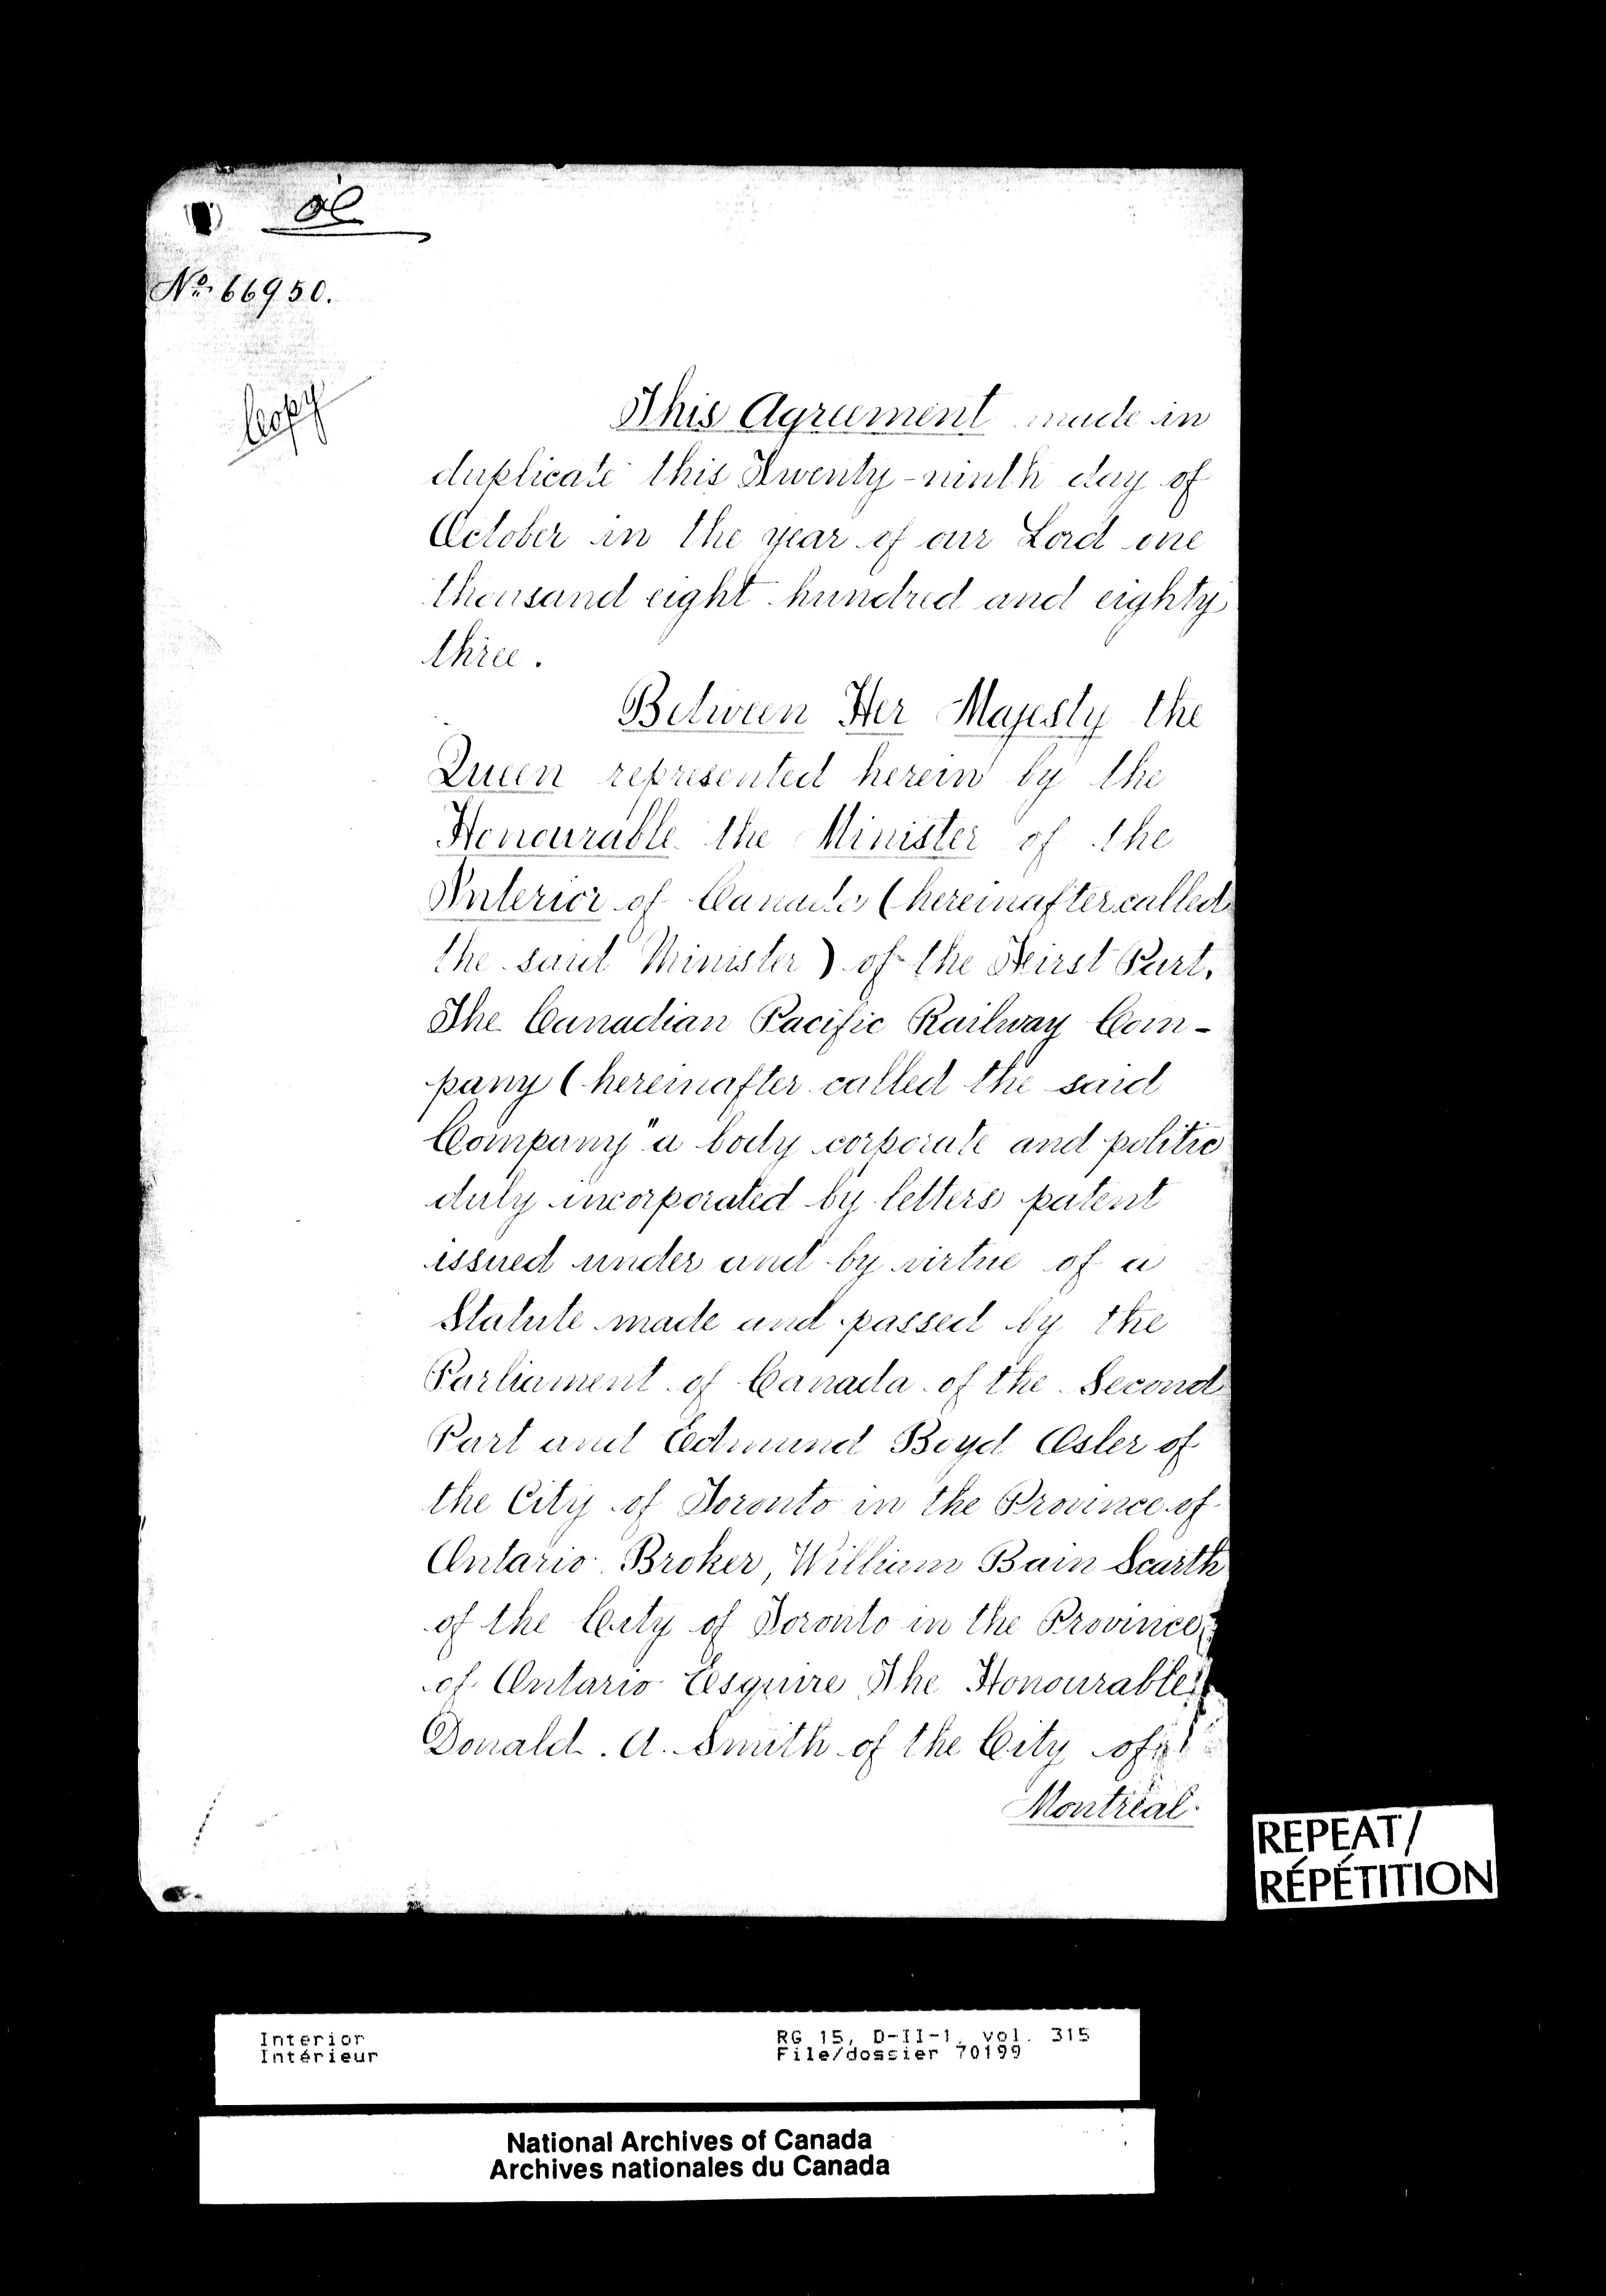 No. 66950.
Copy
This Agreement made in
duplicate this Twenty-ninth day of
October in the year of our Lord one
thousand eight hundred and eighty
three.
Between Her Majesty the
Queen represented herein by the
Honourable the Minister of the
Interior of Canada (hereinafter called
the said Minister) of the First Part.
The Canadian Pacific Railway Com-
pany (hereinafter called the said
Company" a body corporate and politic
duly incorporated by letters patent
issued under and by virtue of a
Statute made and passed by the
Parliament of Canada of the Second
Part and Edmund Boyd Osler of
the City of Toronto in the Province of
Ontario Broker, William Bain Scarth
of the City of Toronto in the Province
of Ontario Esquire The Honourable
Donald. A. Smith of the City of
Montreal.
REPEAT/
RÉPÉTITION
Interior RG 15, D-II-1, vol. 315
Intérieur File/dossier 70199
National Archives of Canada
Archives nationales du Canada